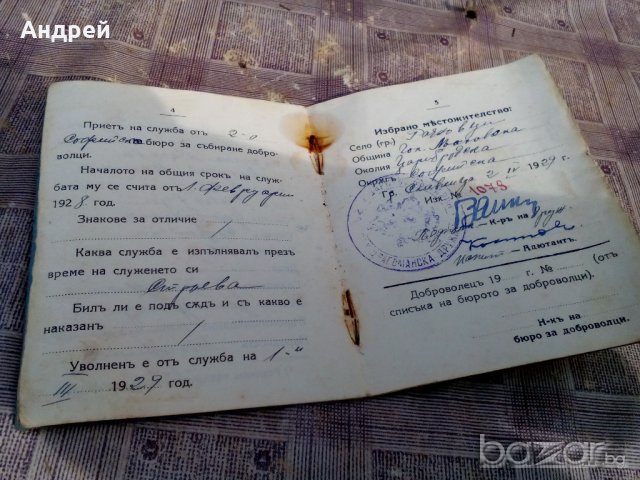 Андрей
4
Приетъ на служба отъ 2-о
Софийско бюро за събиране добро-
волци.
Началото на общия срокъ на служ-
бата му се счита отъ 1 Февруарий
1928 год.
Знакове за отличие /
Каква служба е изпълнявалъ презъ
време на служенето си
Строева
Билъ ли е подъ сждъ и съ какво е
наказанъ /
Уволненъ е отъ служба на 1-и
III 1929 год.
5
Избрано мѣстожителство:
Село (гр.)
Община
Околия Царибродска
Окржгъ Софийска
Гр. Сливница 2 III 1929 г.
Изх. № 1078
К-ръ на друж.
Адютантъ
ДРАГОМАНСКА
Доброволец 19 г. № (отъ
списъка на бюрото за доброволци).
Н-къ на
бюро за доброволци.
bazar.bg